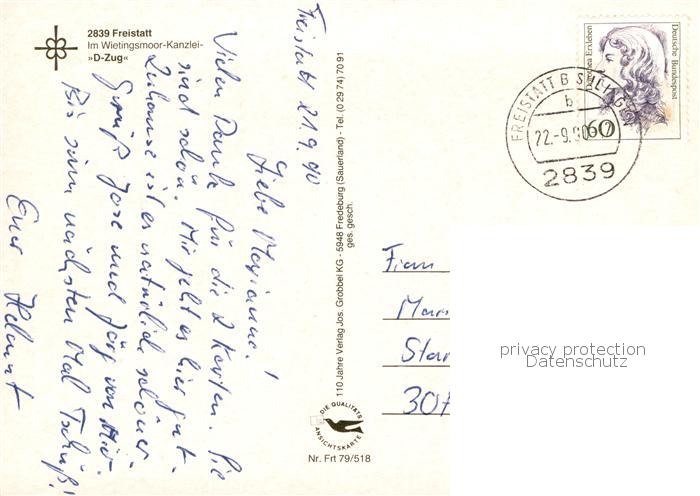 2839 Freistatt
Im Wietingsmoor-Kanzlei-
»D-Zug«
Freistatt 21.9.90
Liebe Marianne!
Vielen Dank für die 2 Karten. Sie
sind schön. Mir geht es hier gut.
Zuhause ist es natürlich schöner.
Grüß Jose und Jörg von Mir.
Bis zum nächsten Mal Tschüß!
Euer Helmut
110 Jahre Verlag Jos. Grobbel KG - 5948 Fredeburg (Sauerland) - Tel. (0 29 74) 70 91
ges. gesch.
DIE QUALITÄTS
ANSICHTSKARTE
Nr. Frt 79/518
Deutsche Bundespost
Dorothea Erxleben
60
FREISTATT B SULINGEN
b
22.-9.90
2839
Frau
Mari
Star
307
privacy protection
Datenschutz